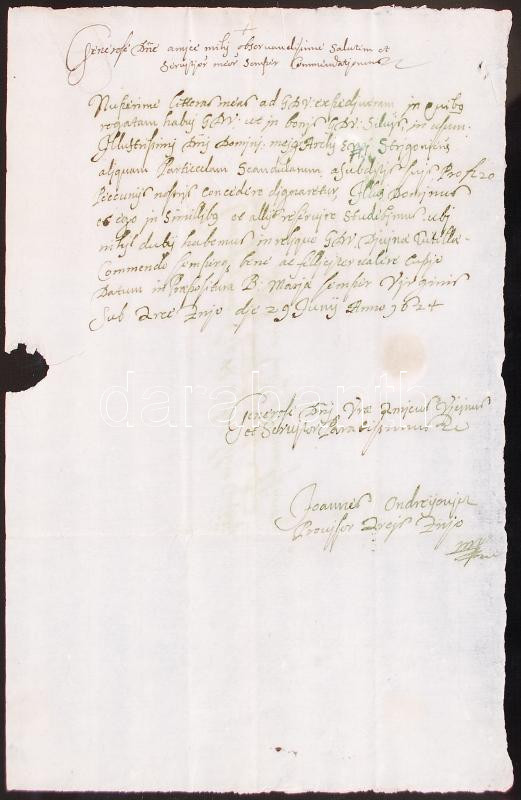 Generose Dne amice mihi observandissime Salutem et
Servitior meor Semper Commendationem
Nuperime litteras meas ad GDV: expedyveram in quibq
rogatam habuj GDV: ut in bonis GDV: in usum
Illustrissimj Dnj Dominj mej Archy Eppj Strigoniens
aliquam Particulam Scandularum, a Subditis suis Pro fl 20
Pecunys nostris concedere dignaretur, Illus Dominus
et ego in Similibq et alys reservire Studebimus, ubj
nihil dubij habemus in reliquo GDV Divinae Tutellae
Commendo semperq bene ac feliciter valere Cupio
Datum in Praepositura B: Mariae semper Virginis
Sub Arce Znio die 29 Junij Anno 1624
Generose Dnj Vrae Amicus Vicinus
et Servitor Paratissimus
Joannes
Provisor Arcis Znio
mp
darabanth